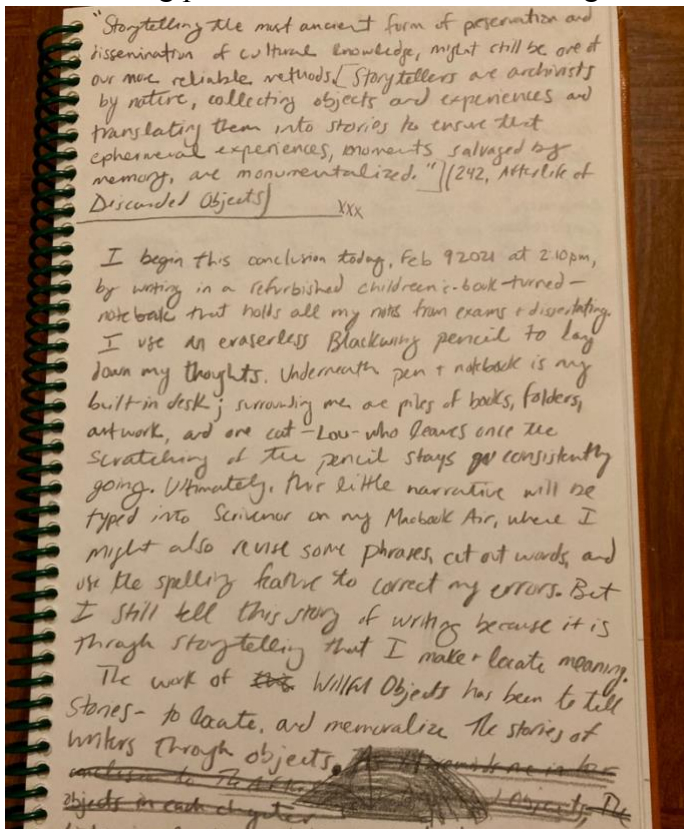 "Storytelling the most ancient form of preservation and
dissemination of cultural knowledge, might still be one of
our more reliable methods. [Storytellers are archivists
by nature, collecting objects and experiences and
translating them into stories to ensure that
ephemeral experiences, moments salvaged by
memory, are monumentalized."] (242, Afterlife of
Discarded Objects)
xxx
I begin this conclusion today, Feb 9 2021 at 2:10pm,
by writing in a refurbished childreen's-book-turned-
notebook that holds all my notes from exams + dissertating.
I use an eraserless Blackwing pencil to lay
down my thoughts. Underneath pen + notebook is my
built-in desk; surrounding me are piles of books, folders,
artwork, and one cat -Lou- who leaves once the
scratching of the pencil stays consistently
going. Ultimately, this little narrative will be
typed into Scrivenor on my Macbook Air, where I
might also revise some phrases, cut out words, and
use the spelling feature to correct my errors. But
I still tell this story of writing because it is
through storytelling that I make + locate meaning.
The work of Willful Objects has been to tell
stories - to locate, and memoralize the stories of
writers through objects.
conclusion to The
objects in each chapter Objects, The